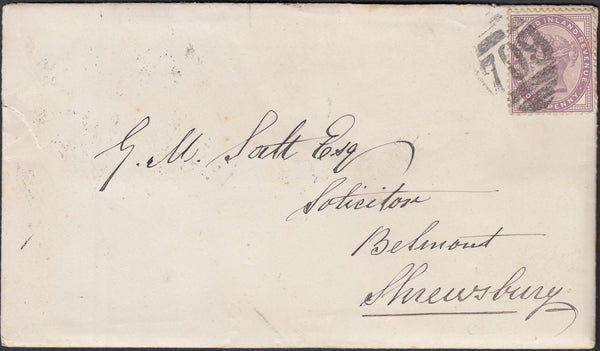 799
D INLAND REVENUE
PENNY
G. M. Salt Esq
Solicitor
Belmont
Shrewsbury